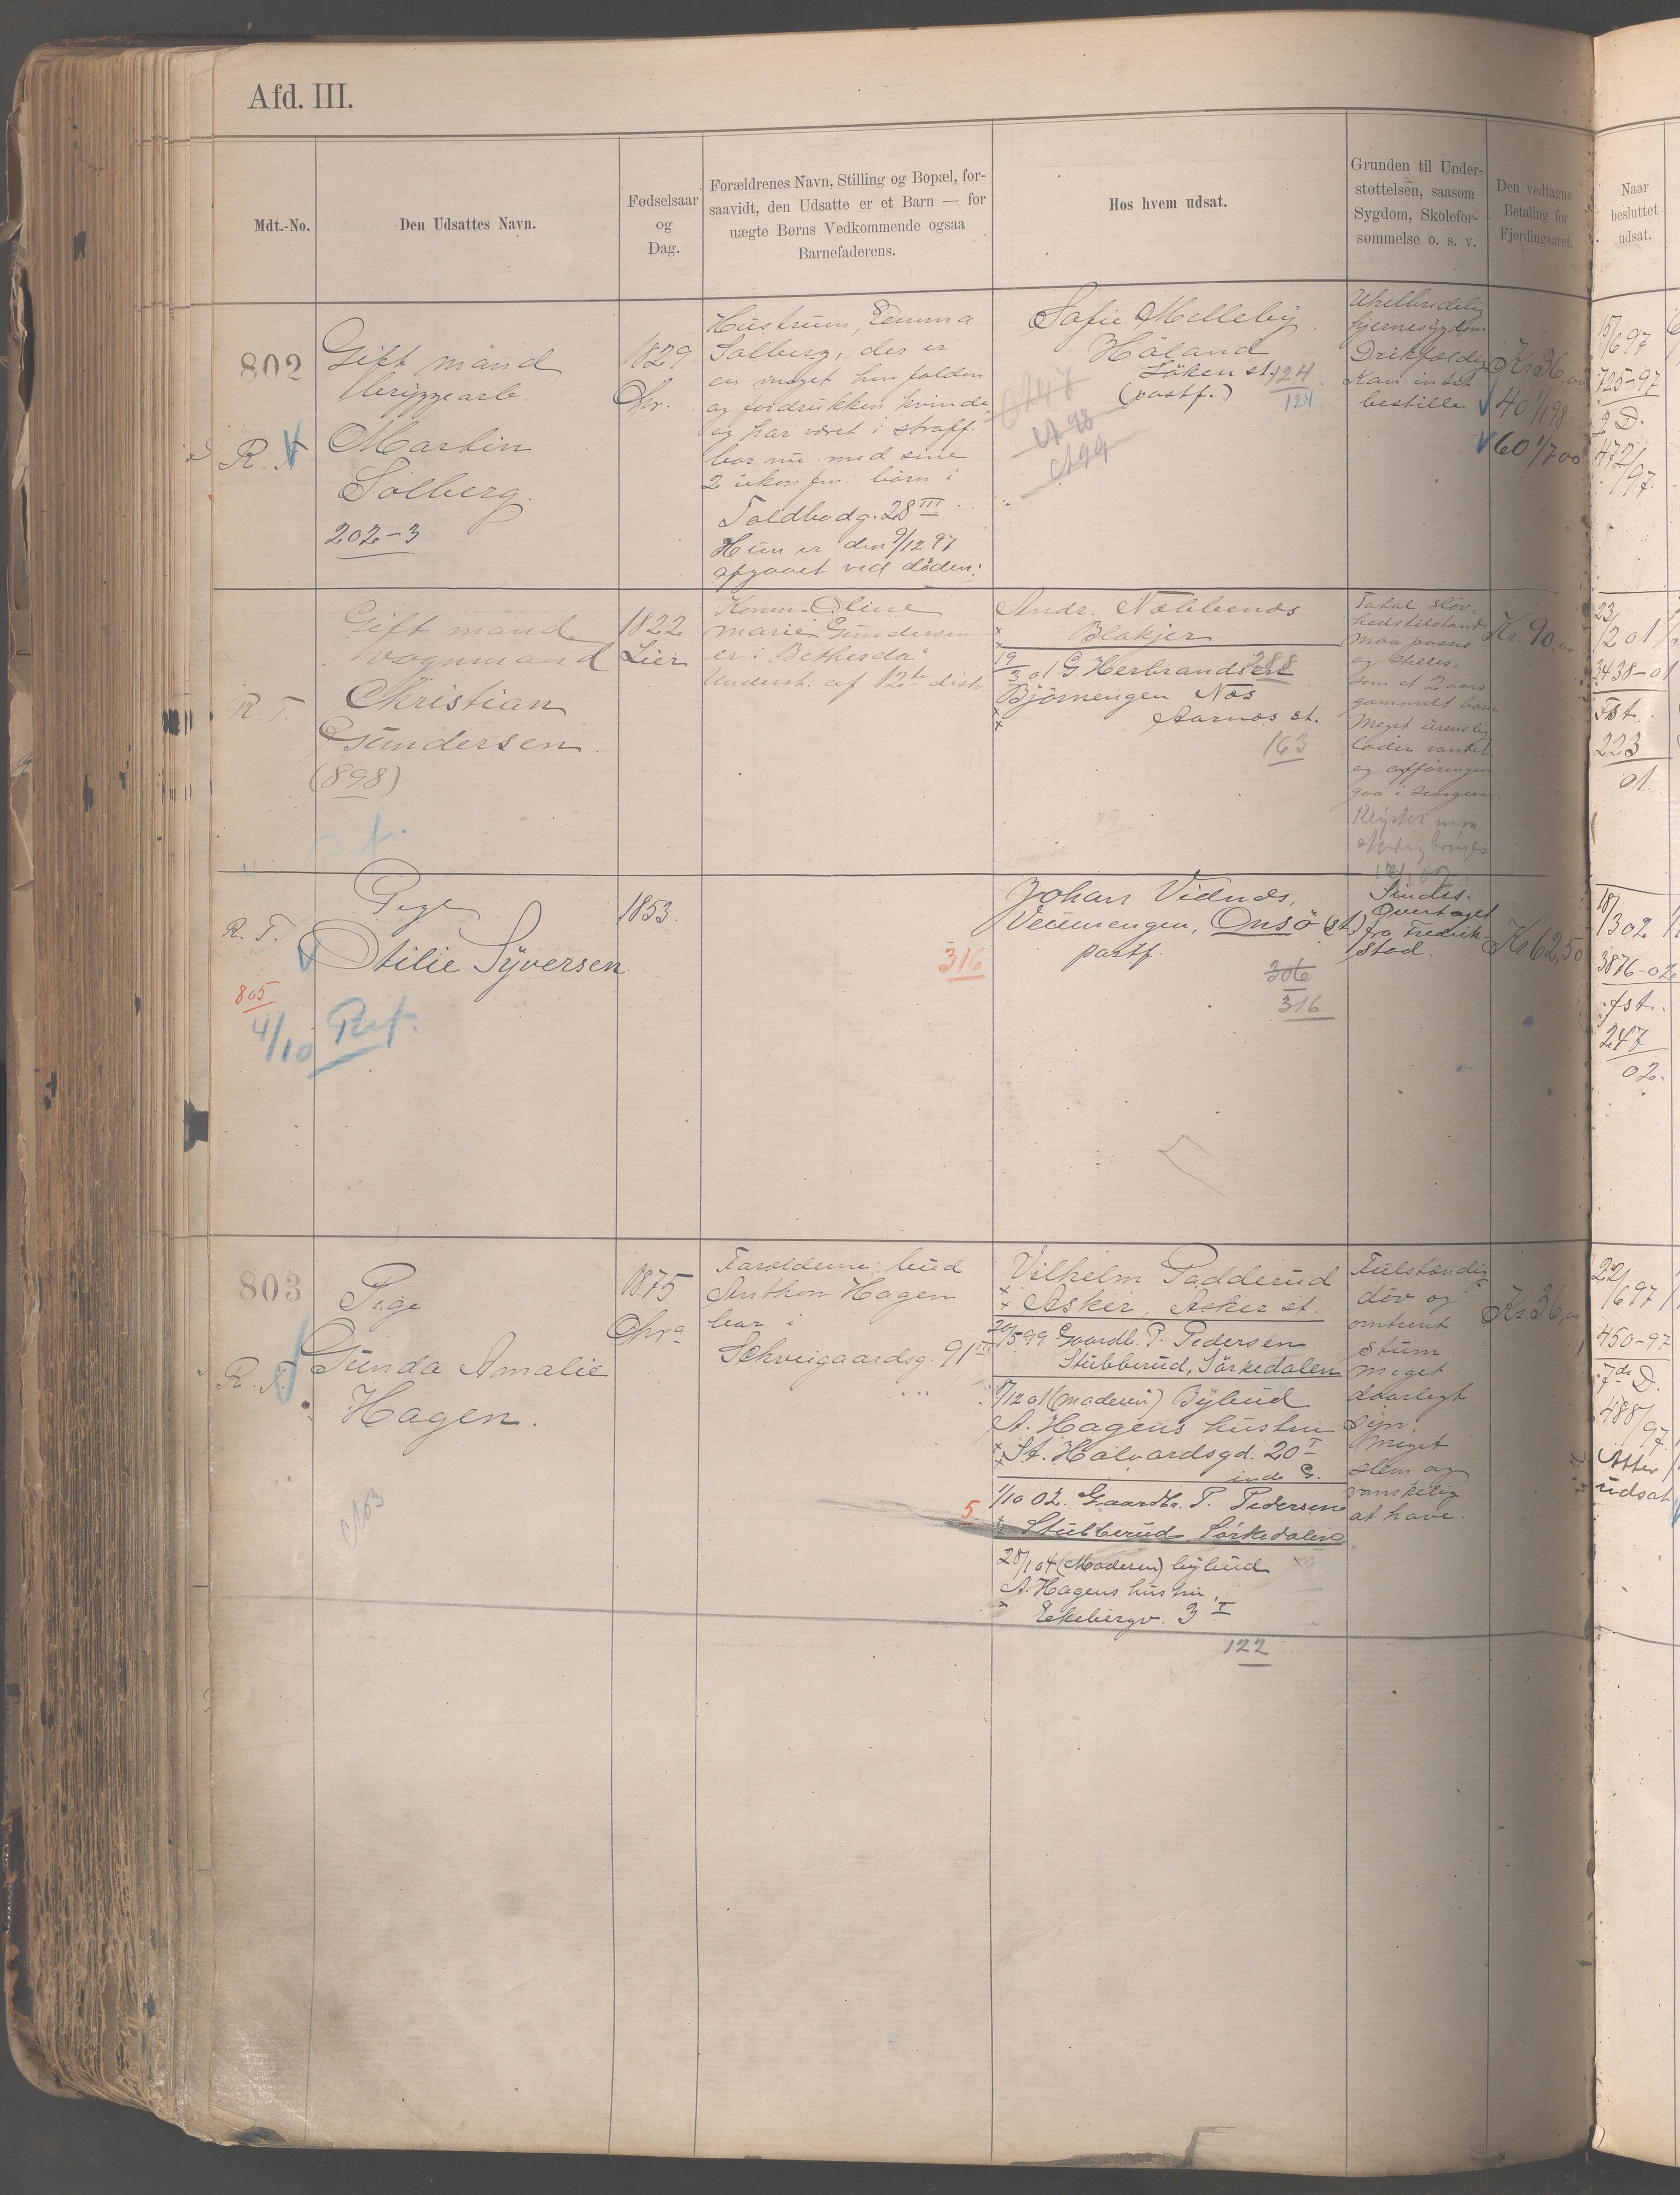 Afd. III.
Mdt.-No.
Den Udsattes Navn.
Fødselsaar
og
Dag.
Forældrenes Navn, Stilling og Bopæl, for-
saavidt, den Udsatte er et Barn — for
uægte Børns Vedkommende ogsaa
Barnefaderens.
Hos hvem udsat.
Grunden til Under-
støttelsen, saasom
Sygdom, Skolefor-
sømmelse o. s. v.
Den vedtagne
Betaling for
Fjerdingaaret.
Naar
besluttet
udsat.
802
R. T
Gift mand
bryggearb.
Martin
Solberg.
202-3
1829
Chr.
Hustruen, Emma
Solberg, der er
en meget hen falden
og fordrukken kvinde
og har været i straff.
bor nu med sine
2 ukonfm. børn i
Toldbodg. 28 III
Hun er den 9/12 97
afgaaet ved döden.
Sofie Melleby
Höland
Löken st.
(postf.)
124
124
A 98
A 99
Uhelbredelig
hjernesygdom
Drikfældig
Kan intet
bestille
Kr. 36,00
40 1/1 98
60 1/7 00
15/6 97
725-97
2 D.
472/97
R. T.
Gift mand
vognmand
Christian
Gundersen
(898)
1822
Lier
Konen Oline
Marie Gundersen
er i "Bethesda"
Underst. af 12te distr.
Andr. Næbbenæs
Blakjer
288
19/3 01 G. Herbrandsen
Björnengen Næs
Aarnæs st.
163
Total slöv-
hedstilstand
maa passes
og stelles,
som et 2 aars
gammelt barn
Meget urenslig
lader vandet
og afföringen
gaa i sengen
Kr. 90,00
23/1 01
3438-01
Fst.
223
01
R. T.
805
4/10
Ref.
Pige
Otilie Syversen
1853.
316
Johan Vidnæs,
Veumengen, Onsö (st.)
postf.
306
316
Sinds.
Overtaget
fra Fredrik-
stad.
Kr. 62,50
18/3 02
3876-02
fst.
247
02.
803
R. T.
Pige
Gunda Amalie
Hagen.
1875
Chra
Forældrene: bud
Anthon Hagen
bor i
Schweigaardsg. 91 III
Vilhelm Padderud
Asker, Asker st.
20/5 99 Gaardb. P. Pedersen
Stubberud, Sörkedalen
/12 01 (moderen) Bybud
A. Hagens hustru
St. Halvardsgd. 20 I
inde G.
5
1/10 02. Gaardbr. P. Pedersen
Stubberud Sörkedalen
28/1 04 (Moderen) bybud
A. Hagens hustru
Ekebergv. 3 I
122
Fulstændig
döv og
omtrent
stum
meget
daarligt
syn.
Meget
slem og
vanskelig
at have.
Kr. 36,00
22/6 97
450-97
7de D.
488/97
Atter
udsat